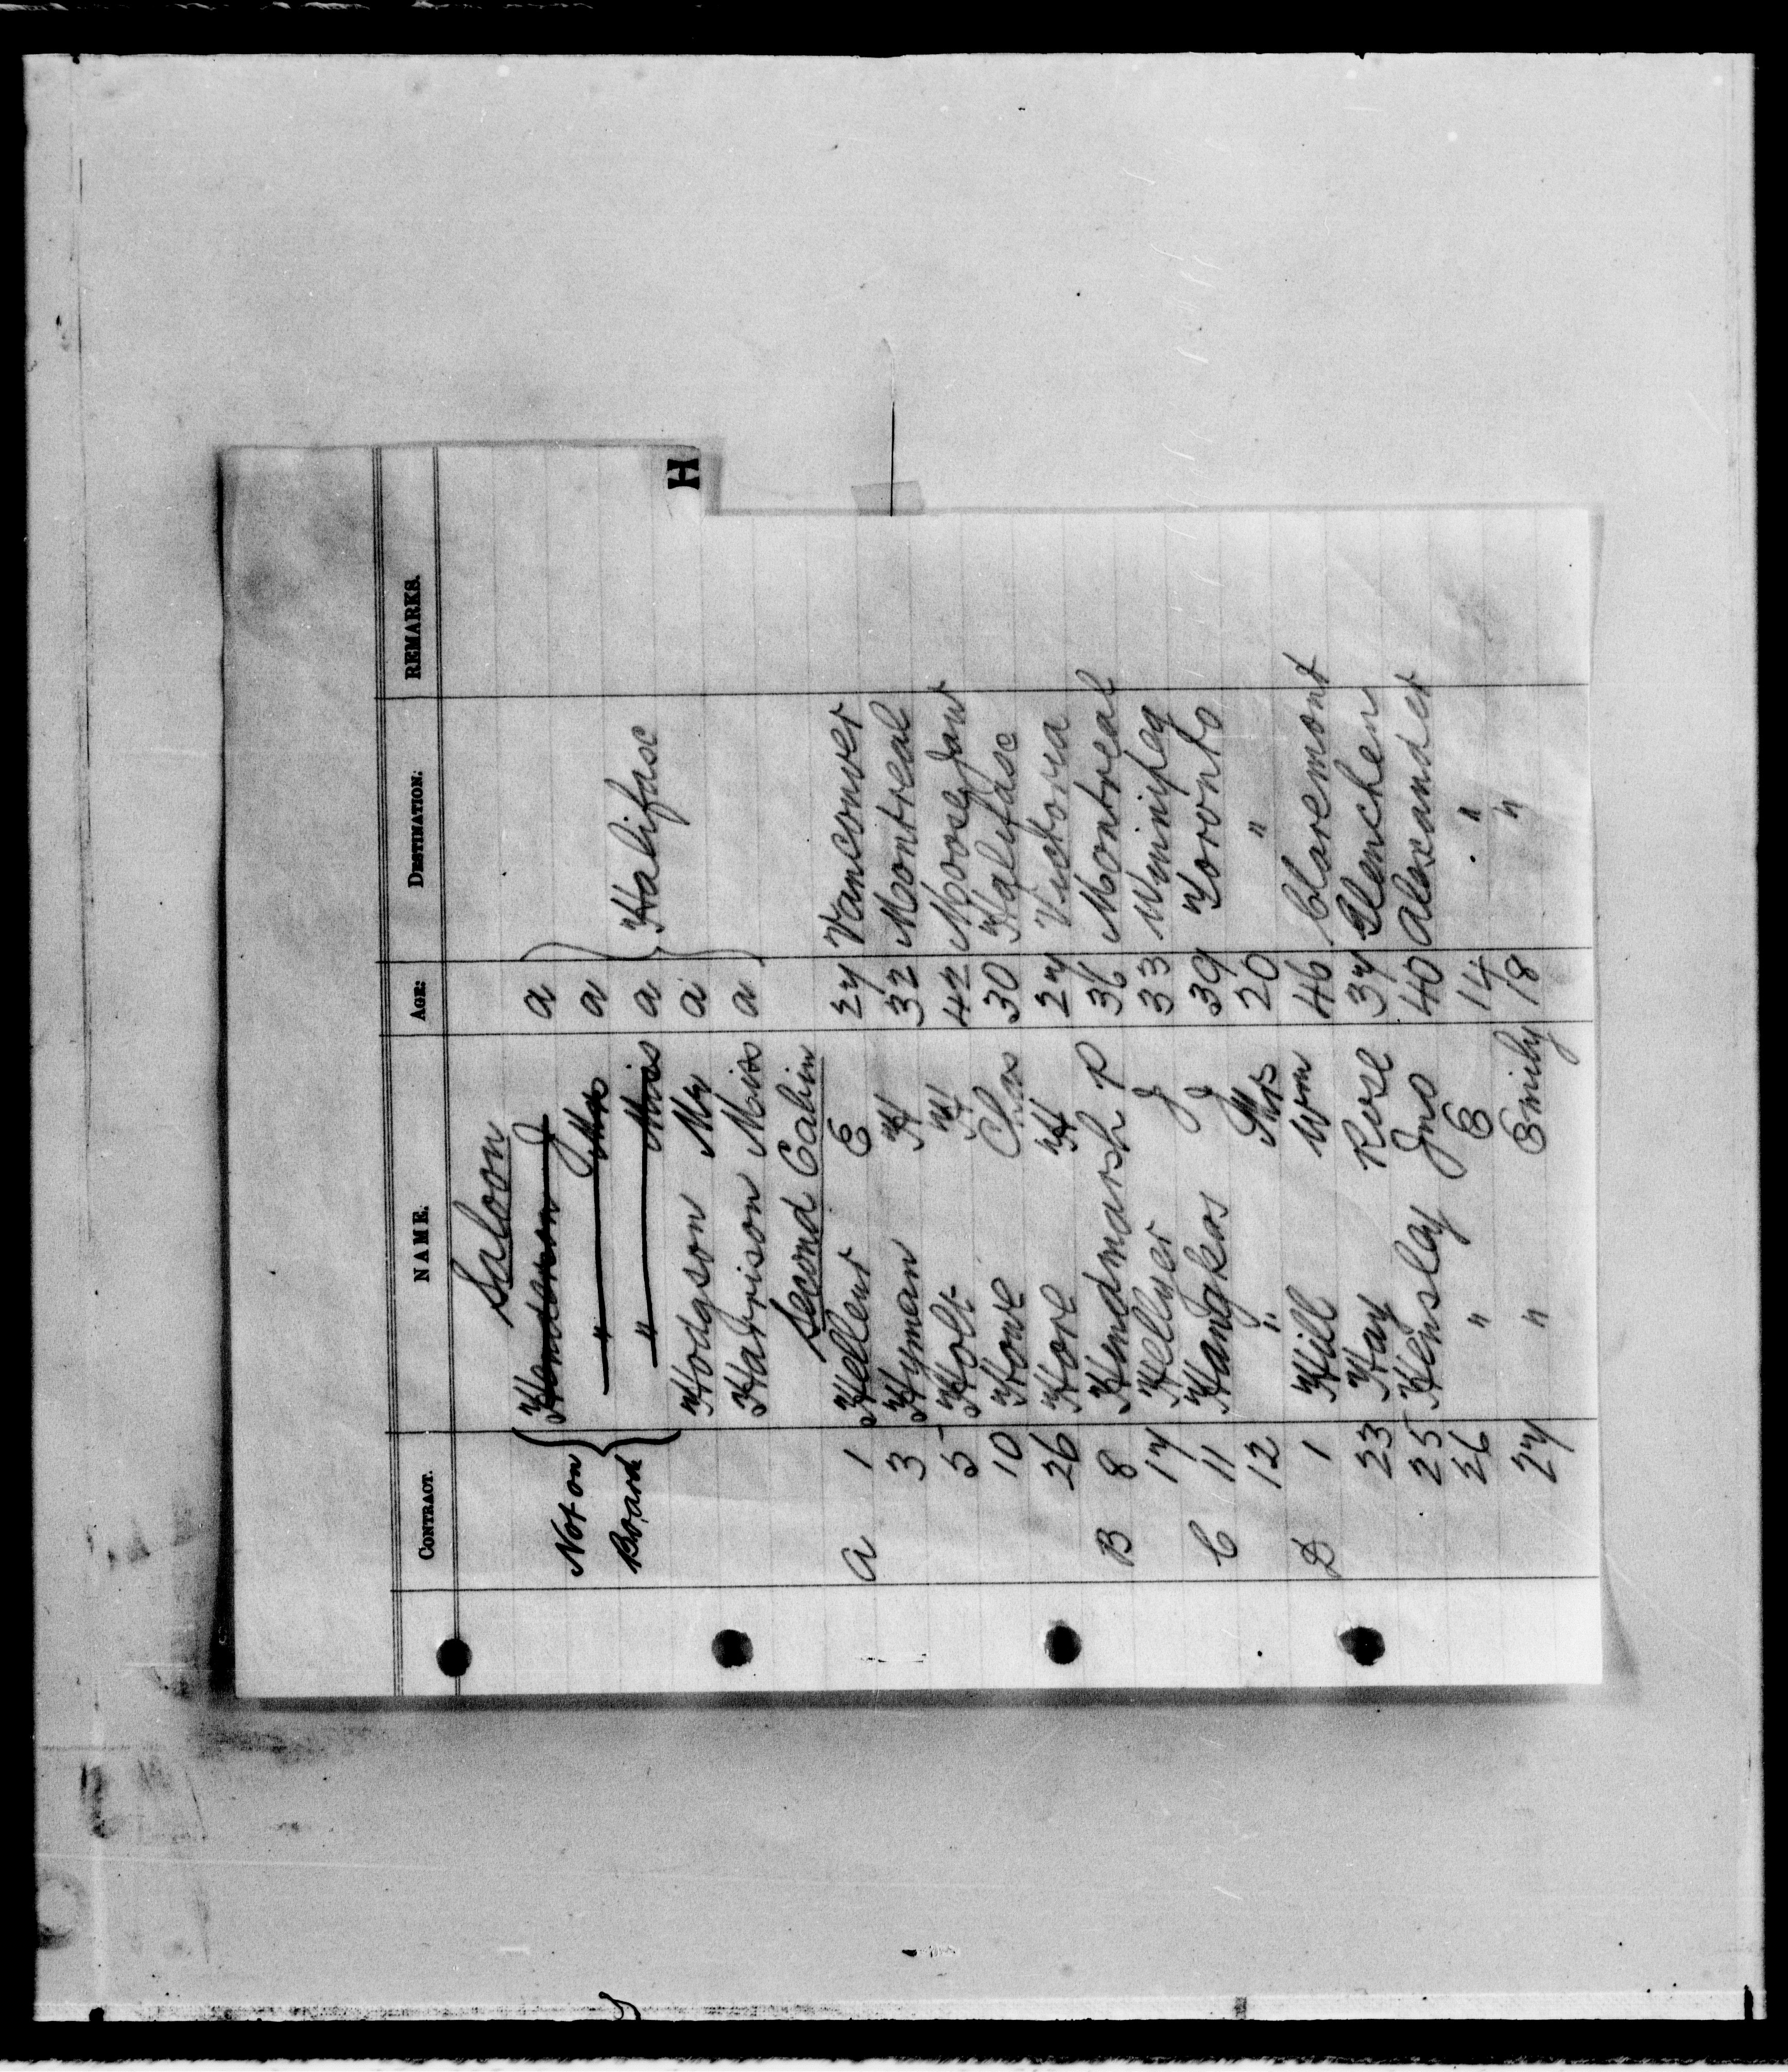 H
CONTRACT. NAME. AGE: DESTINATION: REMARKS.
Saloon
Henderson J a
Not on " Mrs a
Board " Miss a Halifax
Hodgson Mr a
Harrison Miss a
Second Cabin
A 1 Hellett E 27 Vancouver
3 Hyman H 32 Montreal
5 Holt H 42 Moose Jaw
10 Howe Chas 30 Halifax
26 Hore H 27 Victoria
B 8 Hindmarsh P 36 Montreal
17 Hellyer J 33 Winnipeg
C 11 J 39 Toronto
12 " Mrs 20 "
D 1 Hill Wm 46 Claremont
23 Hay Rose 37 Glenchen
25 Hensley Jno 40 Alexander
26 " E 14 "
27 " Emily 18 "